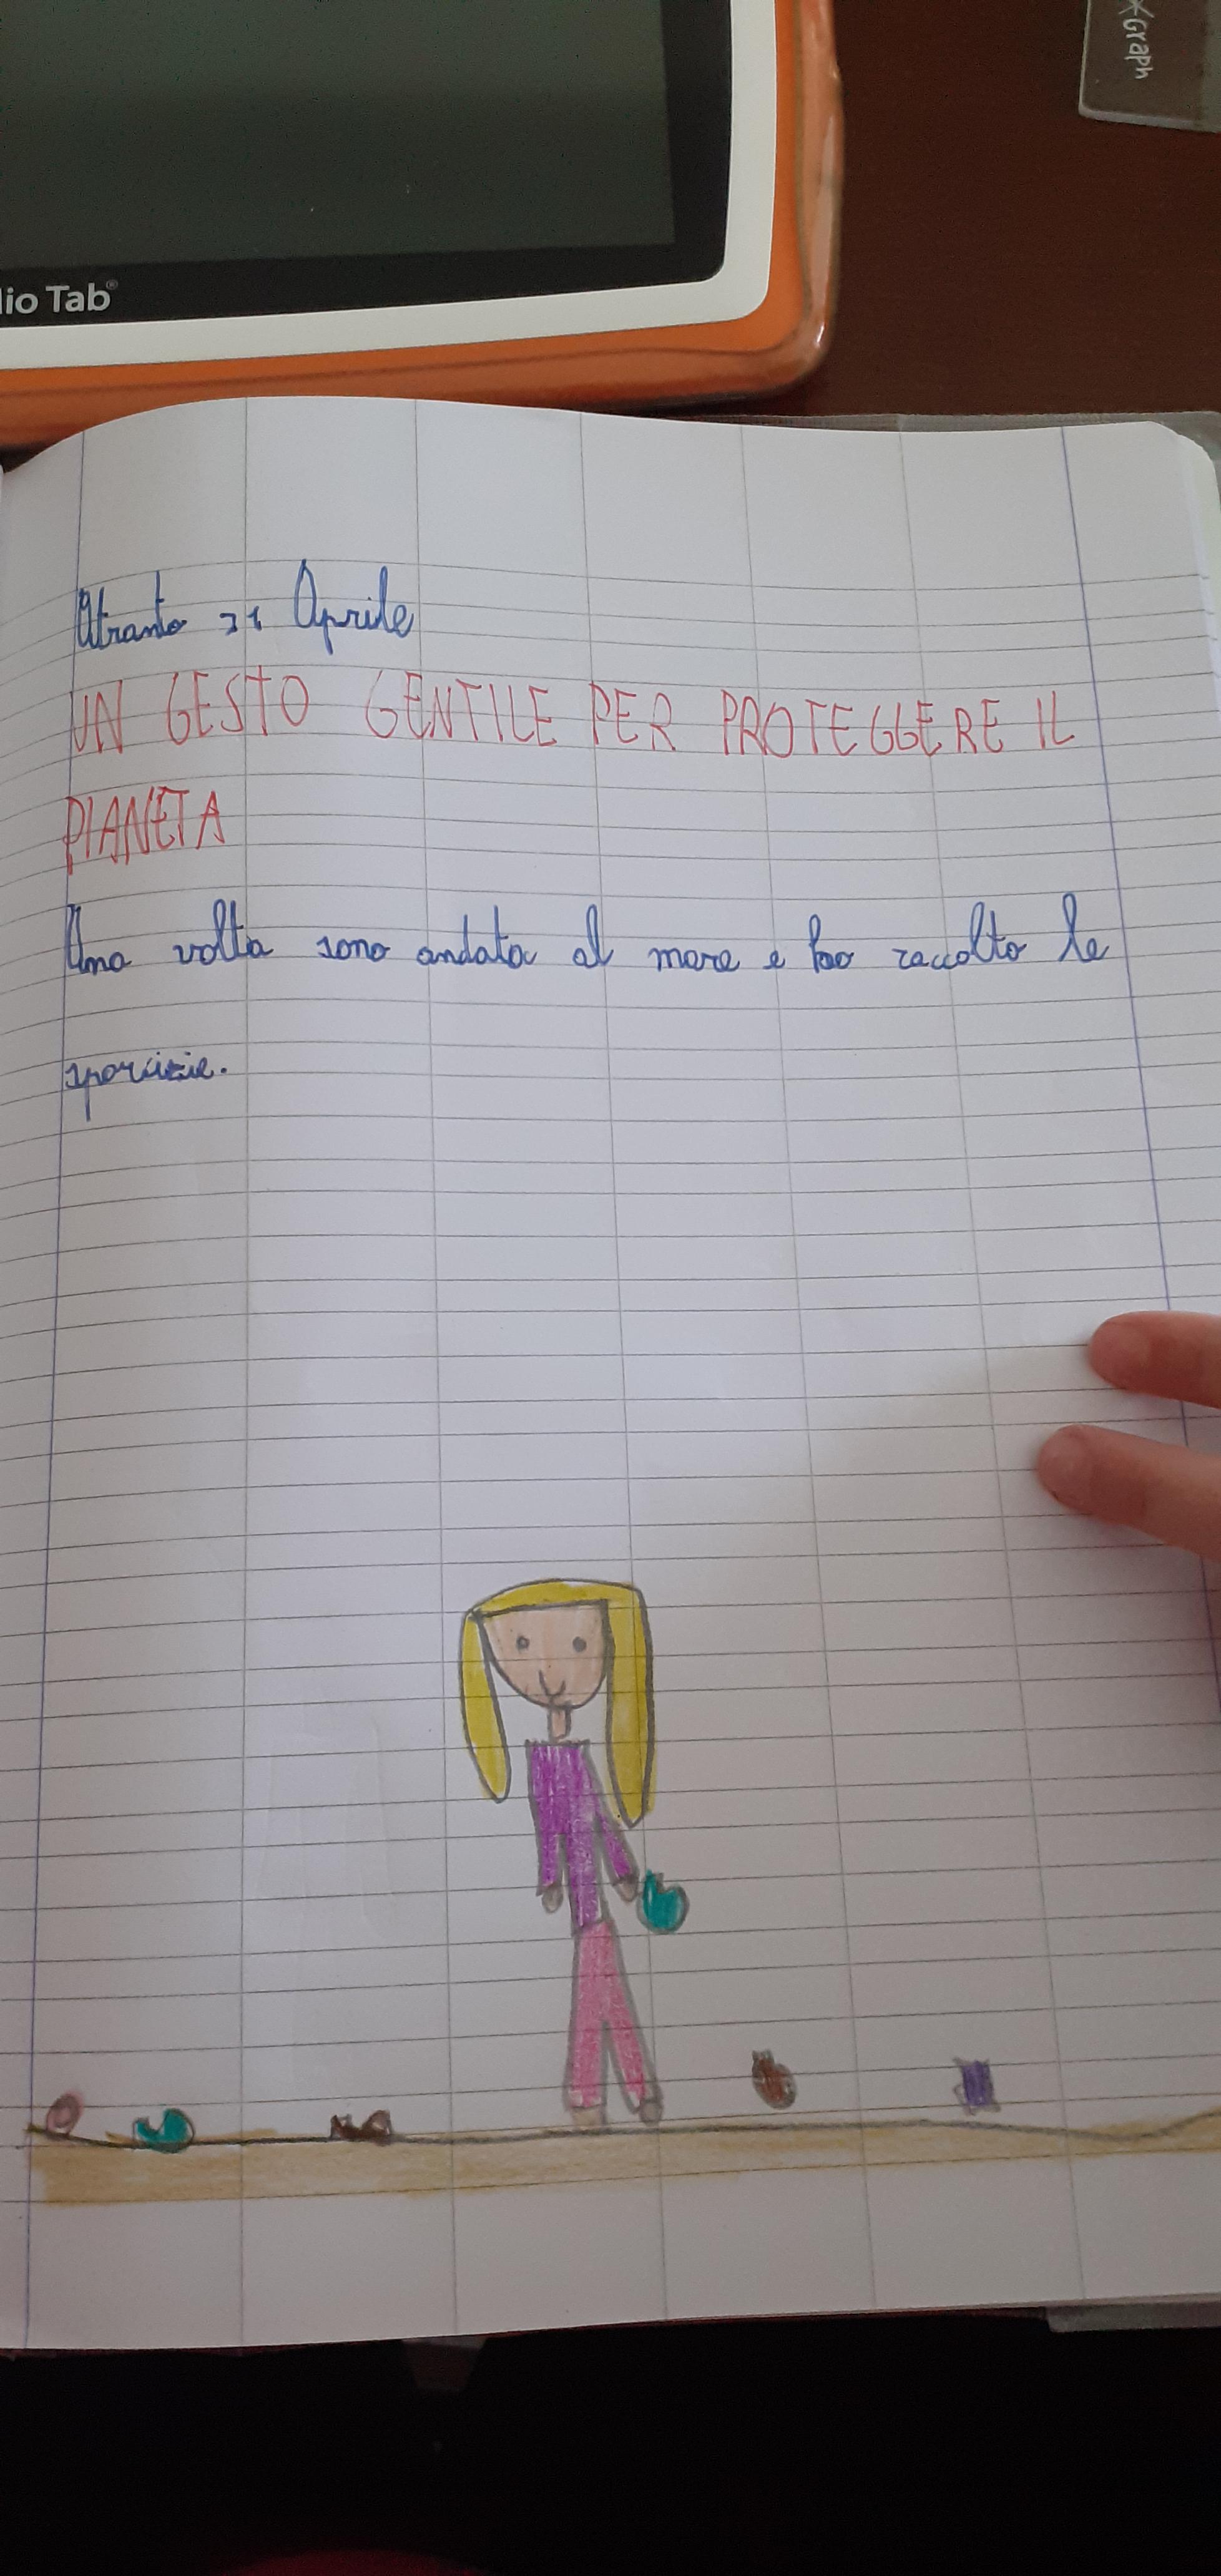 *Graph
lio Tab®
Otranto 21 Aprile
UN GESTO GENTILE PER PROTEGGERE IL
PIANETA
Una volta sono andata al mare e ho raccolto le
sporcizie.